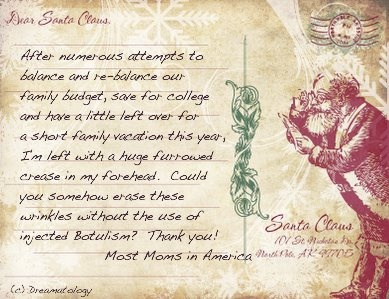 Dear Santa Claus,
After numerous attempts to
balance and re-balance our
family budget, save for college
and have a little left over for
a short family vacation this year,
I'm left with a huge furrowed
crease in my forehead. Could
you somehow erase these
wrinkles without the use of
injected Botulism? Thank you!
Most Moms in America
Santa Claus
101 St. Nicholas
North Pole, AK
(c) Dreamatology